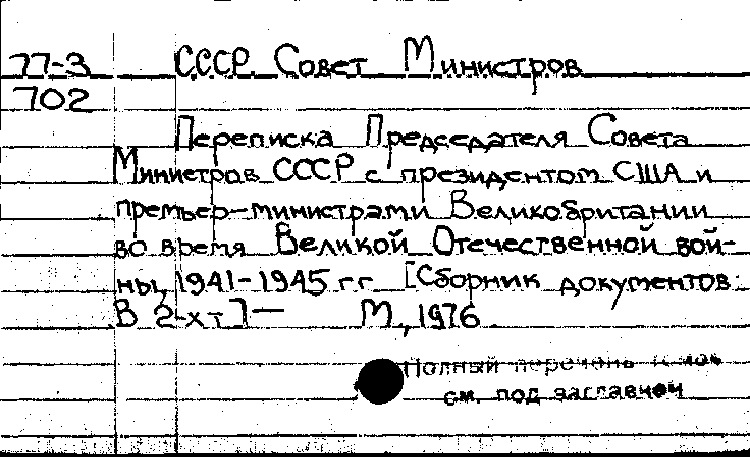 77-3 СССР. Совет Министров
702
Переписка Председателя Совета
Министров СССР с президентом США и
премьер-министрами Великобритании
во время Великой Отечественной вой-
ны, 1941-1945 гг [Сборник документов.
В 2-х т] — М., 1976
Полный перечень
см. под заглавием